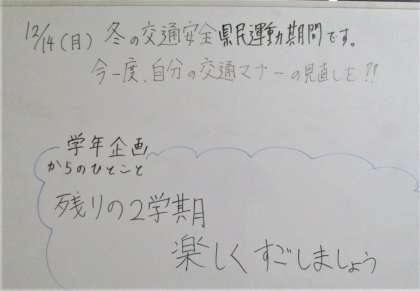 12/14(月) 冬の交通安全県民運動期間です。
今一度、自分の交通マナーの見直しを!!
学年企画
からのひとこと
残りの2学期
楽しくすごしましょう